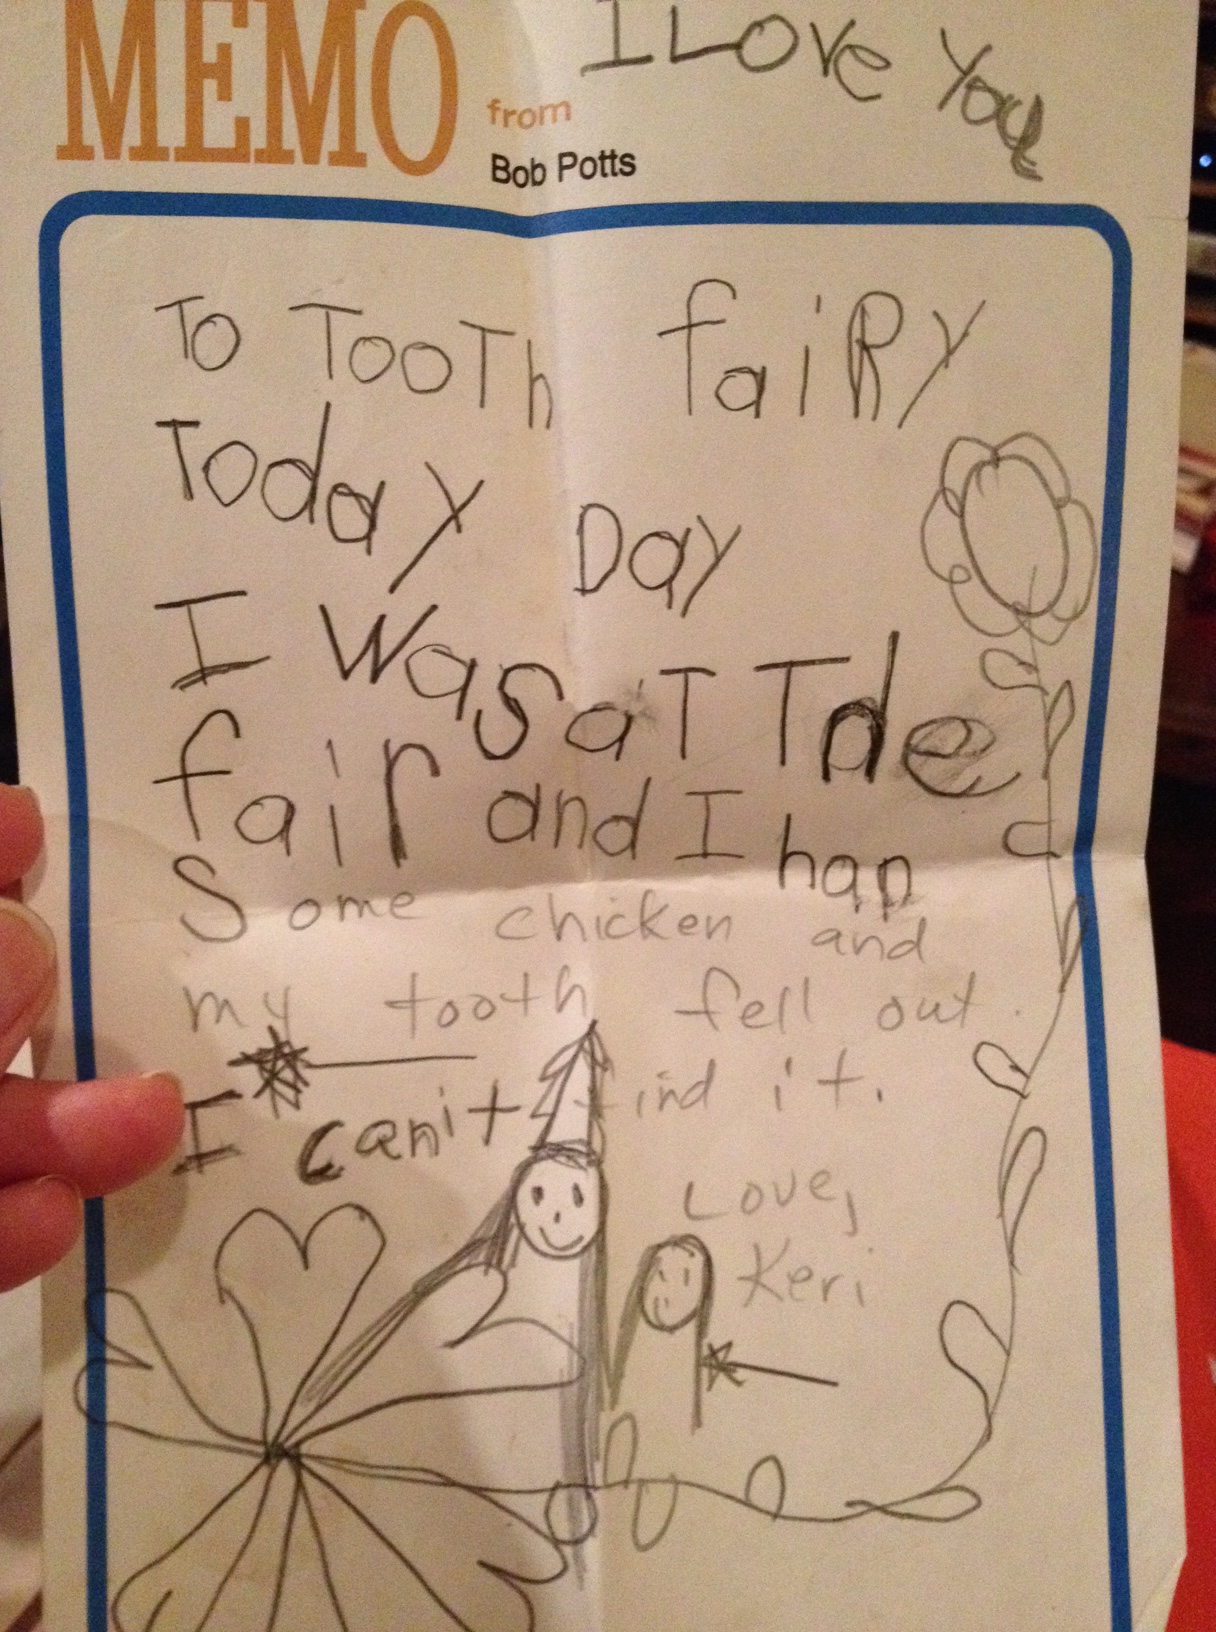 MEMO
from
Bob Potts
I Love You
To TooTh faiRy
Today Day
I Was aT Tde
fair and I han
Some chicken and
my tooth fell out.
I canit find it.
Love,
Keri